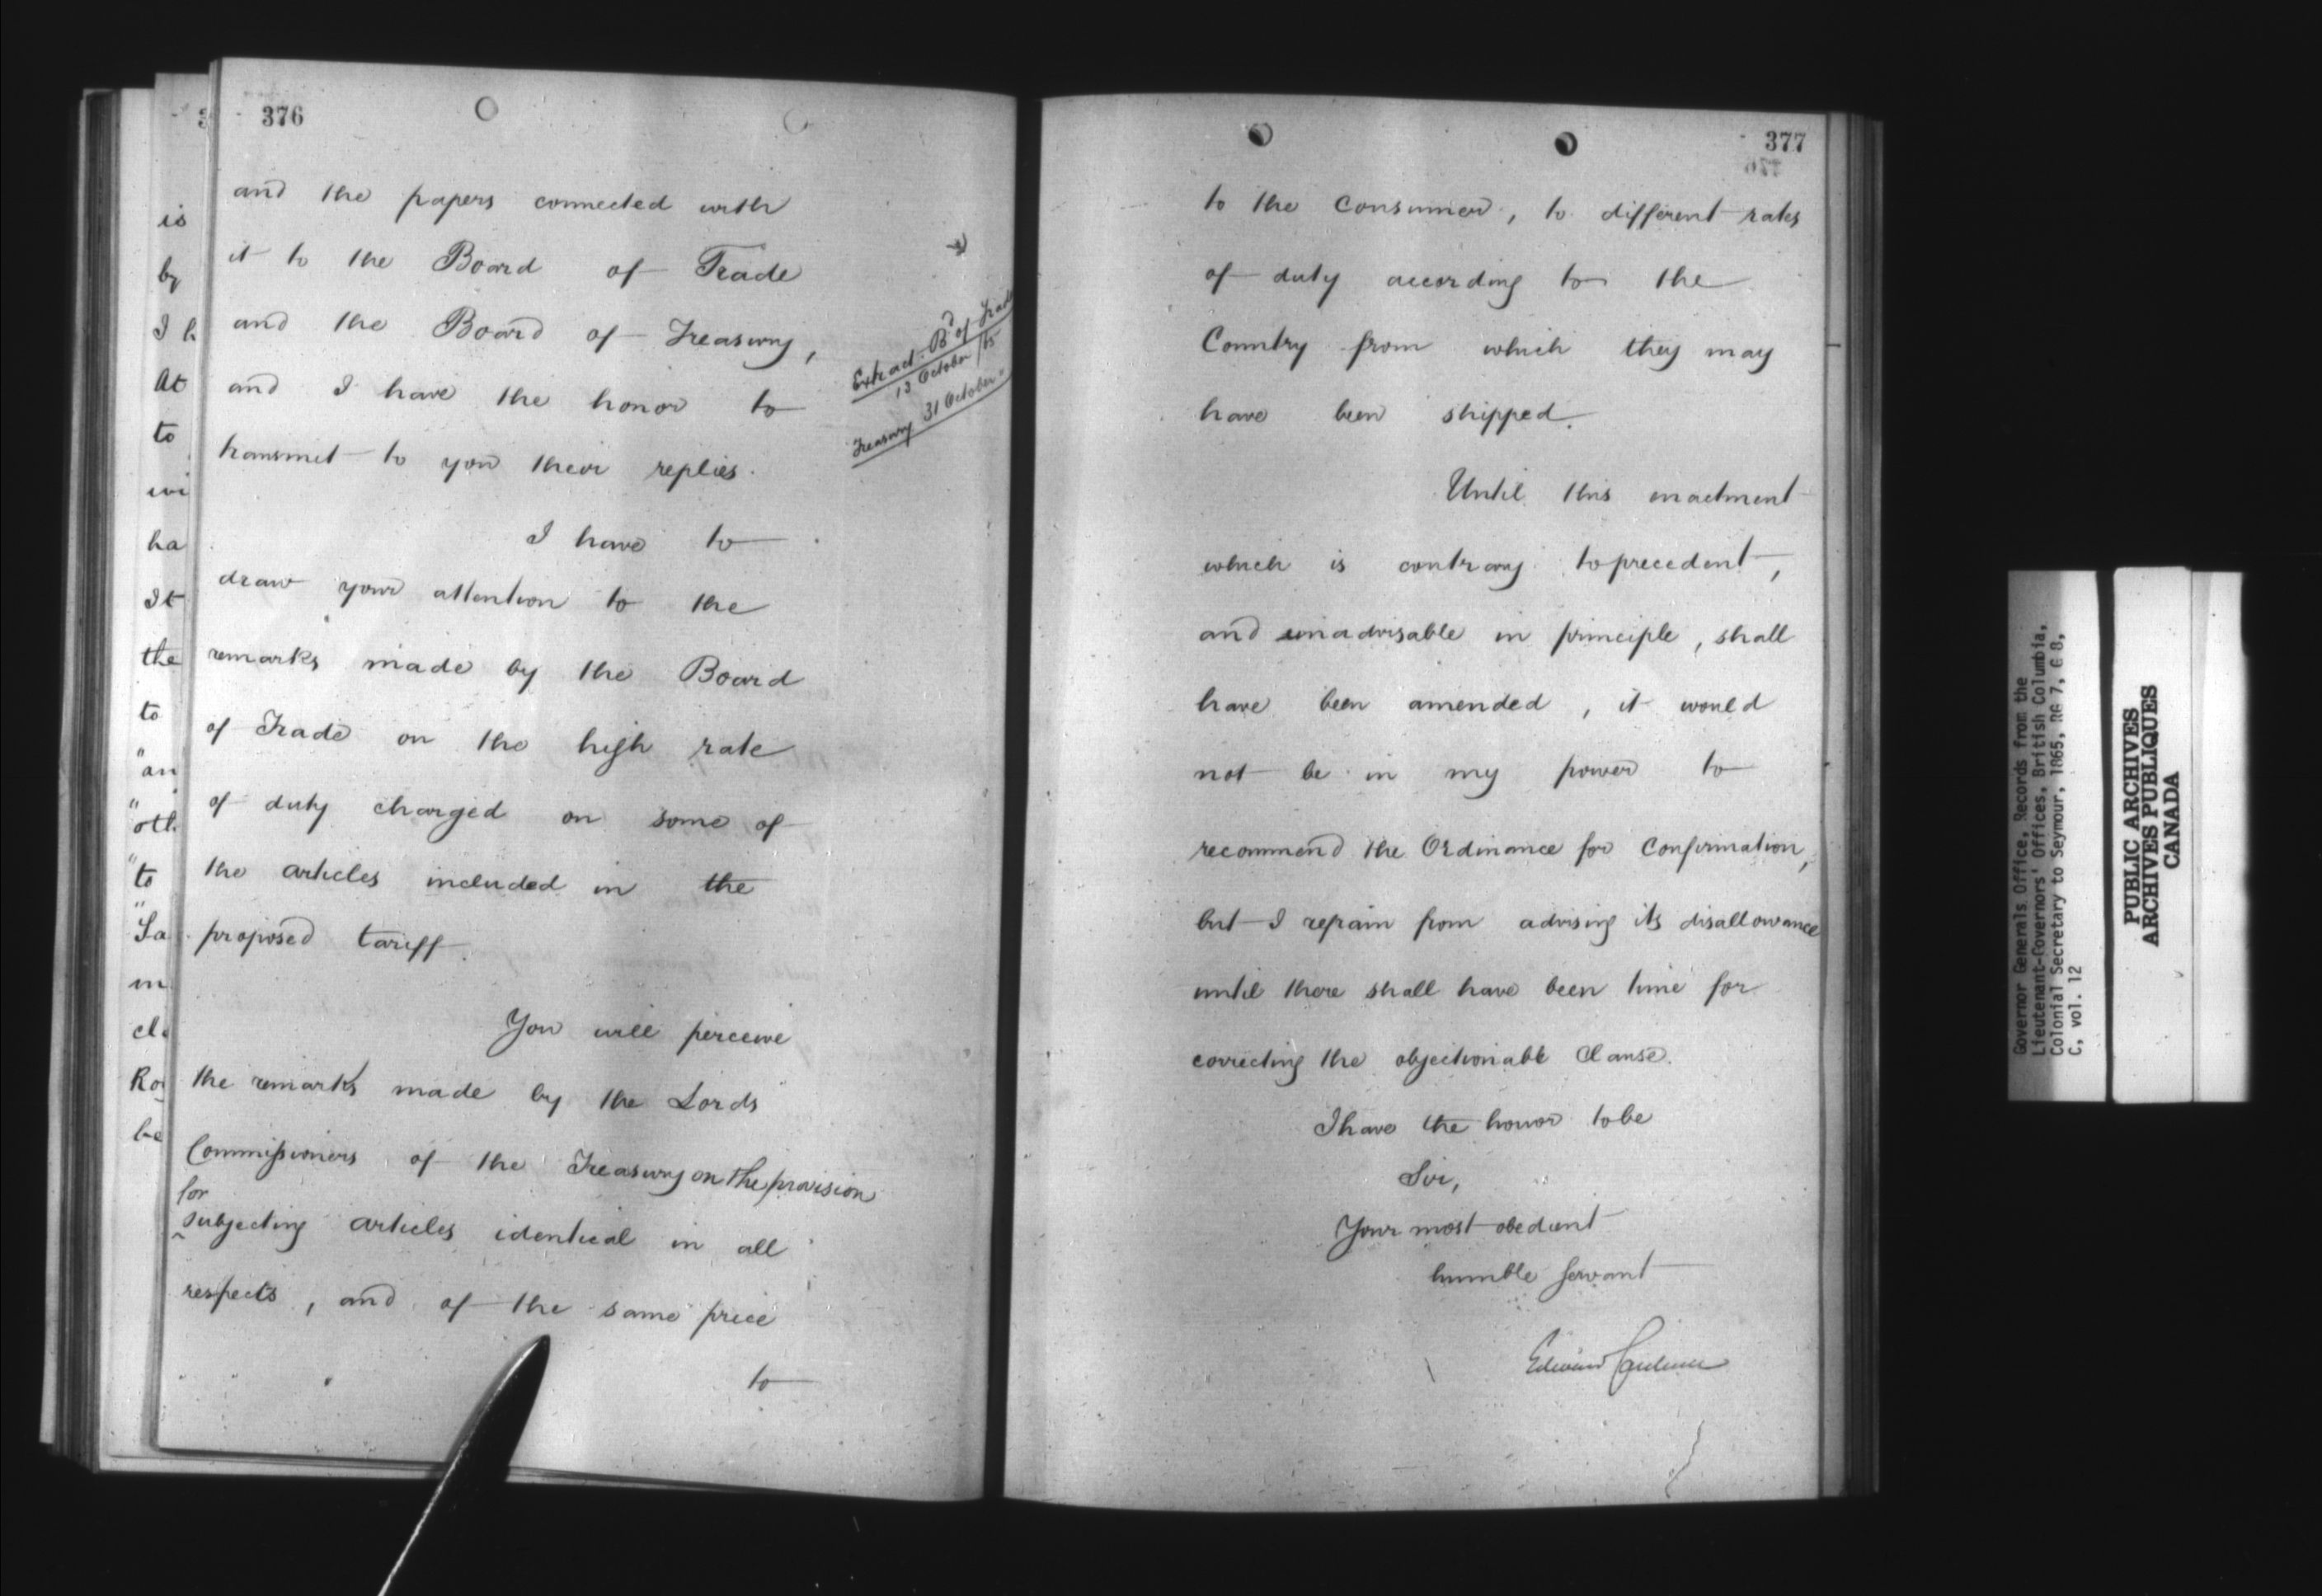 376
and the papers connected with
it to the Board of Trade
and the Board of Treasury,
and I have the honor to
transmit to you their replies.
Extract Bd of Trade
13 October /65
Treasury 31 October "
I have to
draw your attention to the
remarks made by the Board
of Trade on the high rate
of duty charged on some of
the articles included in the
proposed tariff.
You will perceive
the remarks made by the Lords
Commissioners of the Treasury on the provision
for
subjecting articles identical in all
respects, and of the same price
to
is
by
I h
At
to
wi
ha
It
the
to
"an
"oth
"to
"Sa
in
cl
Ro
be
377
to the Consumer, to different rates
of duty according to the
Country from which they may
have been shipped.
Until this enactment
which is contrary to precedent,
and unadvisable in principle, shall
have been amended, it would
not be in my power to
recommend the Ordinance for Confirmation,
but I refrain from advising its disallowance
until there shall have been time for
correcting the objectionable Clause.
I have the honor to be
Sir,
Your most obedient
humble Servant
Edward Cardwell
Governor Generals Office, Records from the
Lieutenant-Governors' Offices, British Columbia,
Colonial Secretary to Seymour, 1865, RG 7, G 8,
C, vol. 12
PUBLIC ARCHIVES
ARCHIVES PUBLIQUES
CANADA